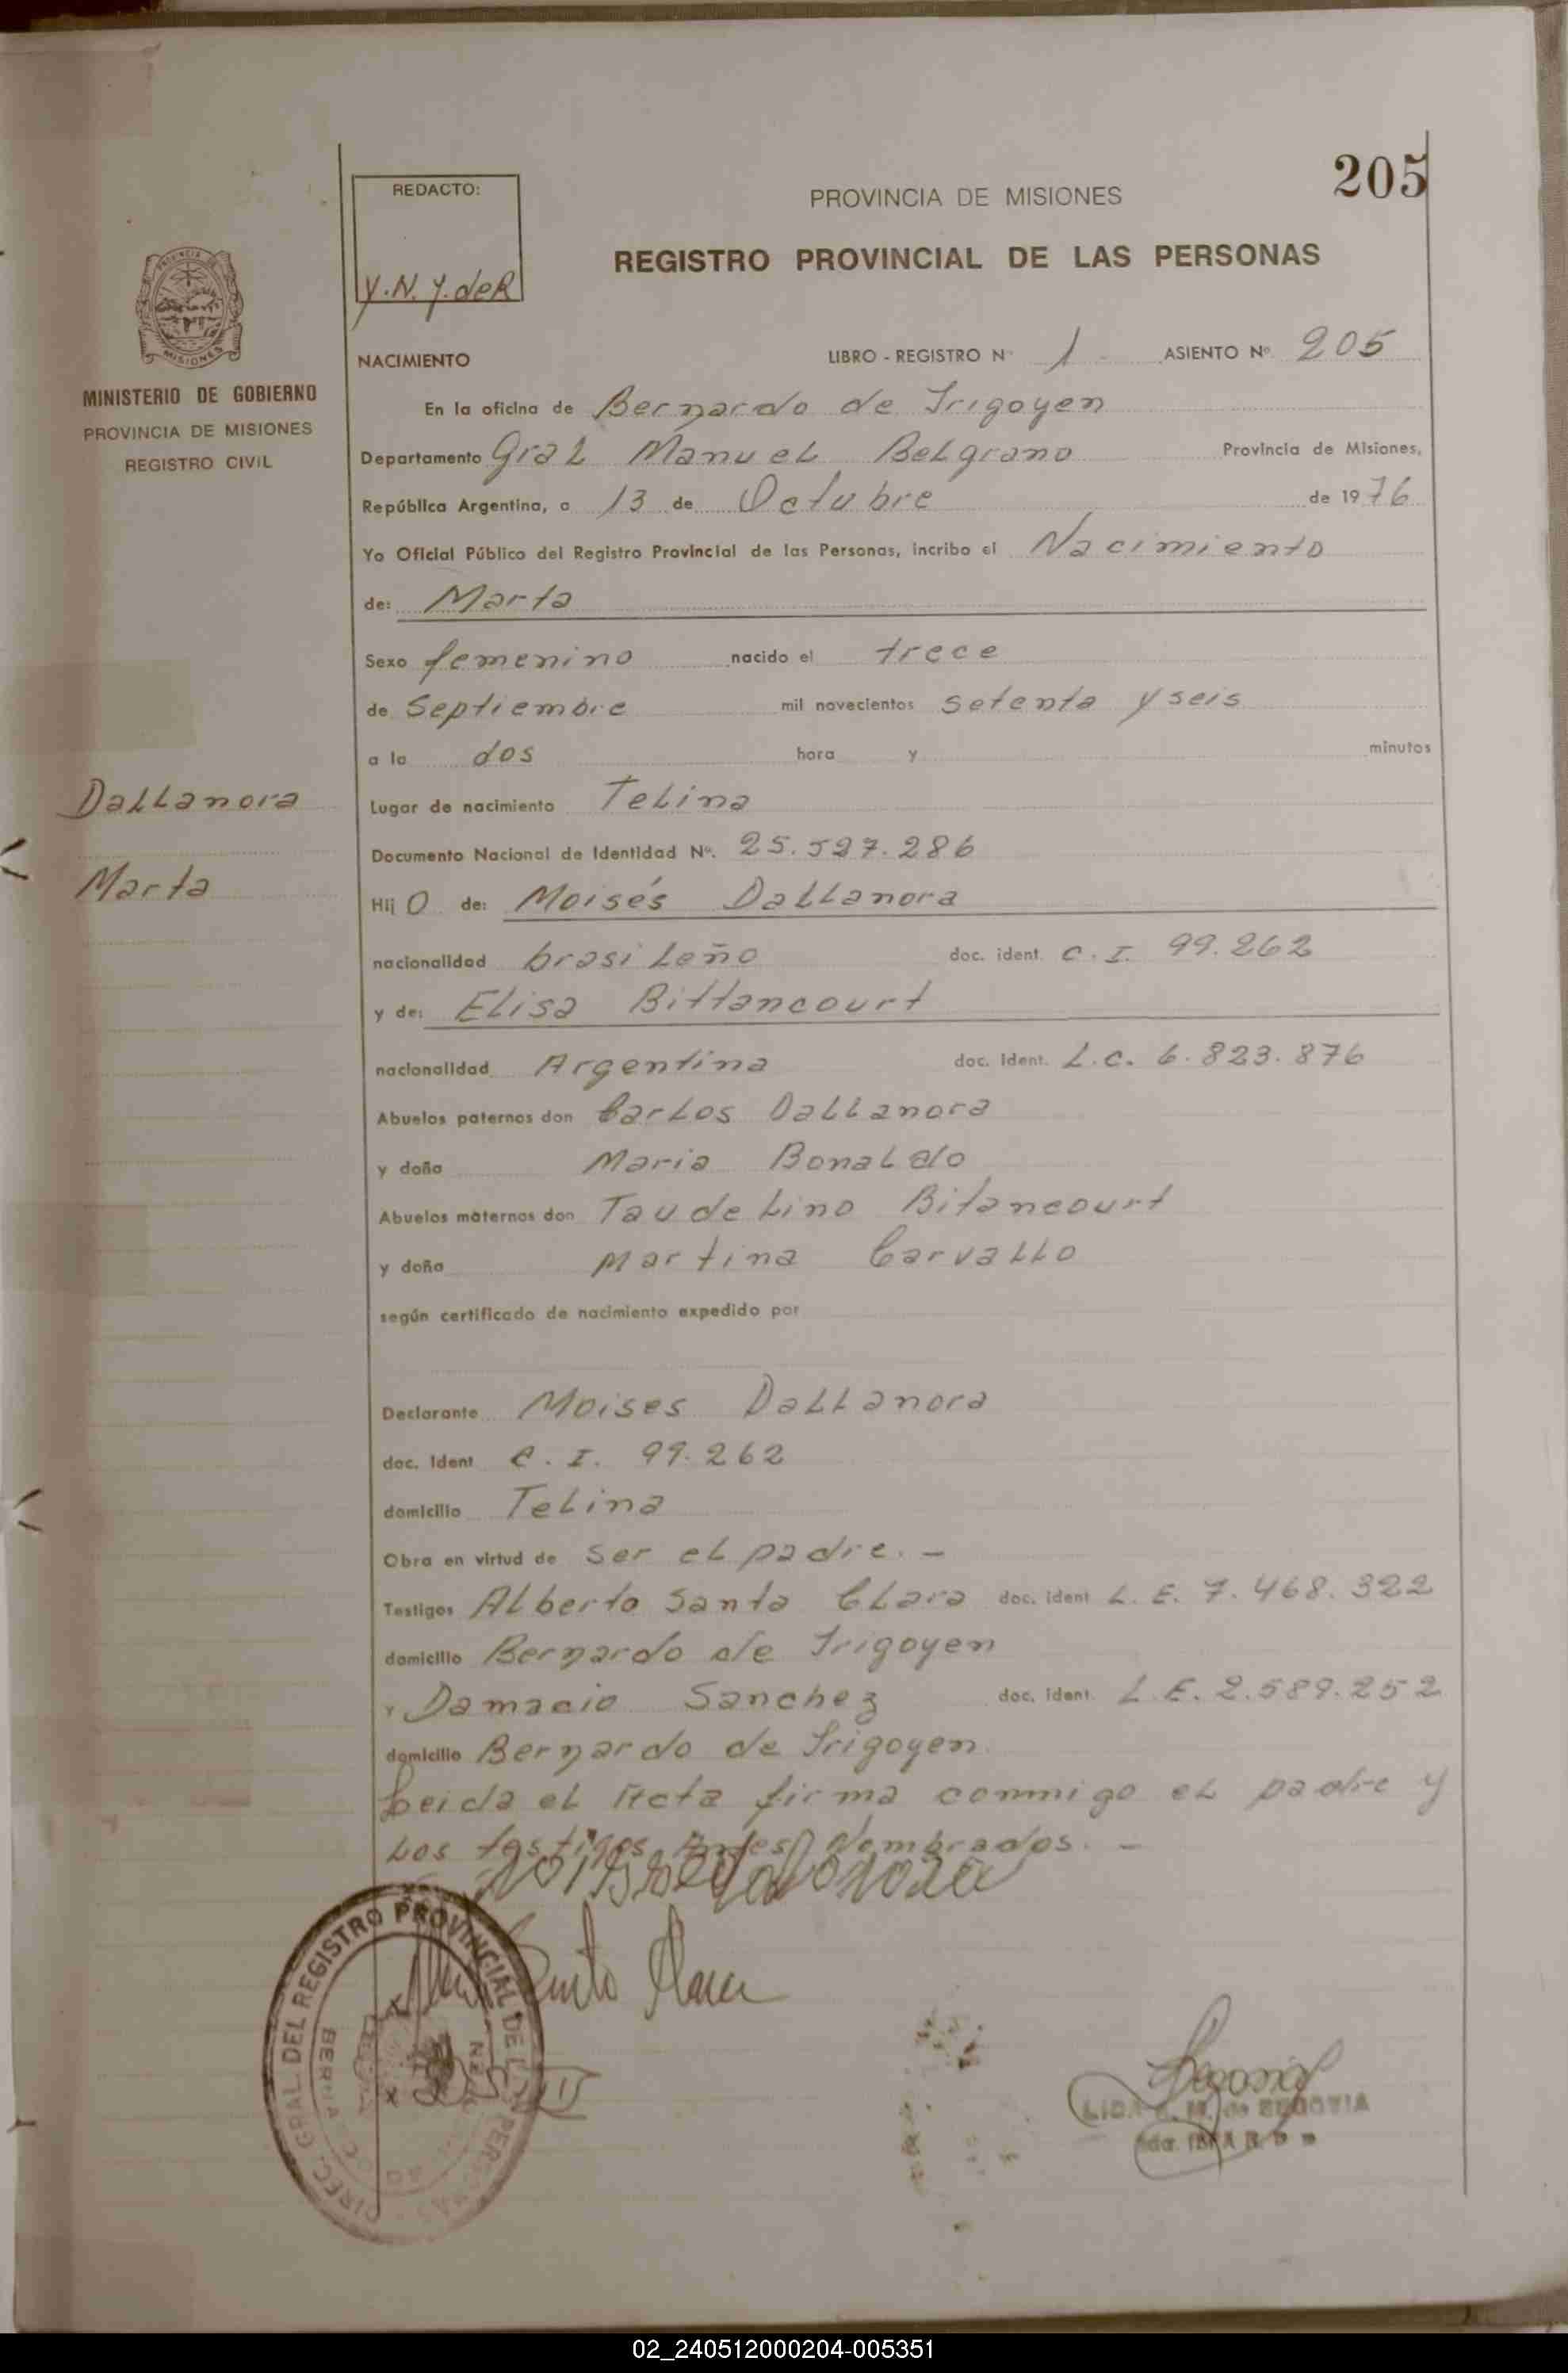 205
REDACTO:
Y.N.Y.deR
PROVINCIA DE MISIONES
REGISTRO PROVINCIAL DE LAS PERSONAS
PROVINCIA DE
MISIONES
MINISTERIO DE GOBIERNO
PROVINCIA DE MISIONES
REGISTRO CIVIL
NACIMIENTO LIBRO - REGISTRO Nº 1 - ASIENTO Nº 205
En la oficina de Bernardo de Irigoyen
Departamento Gral Manuel Belgrano Provincia de Misiones,
República Argentina, a 13 de Octubre de 1976
Yo Oficial Público del Registro Provincial de las Personas, incribo el Nacimiento
de: Marta
Sexo femenino nacido el trece
de Septiembre mil novecientos setenta y seis
a la dos hora y minutos
Dallanora
Marta
Lugar de nacimiento Telina
Documento Nacional de Identidad Nº. 25.527.286
Hij O de: Moisés Dallanora
nacionalidad brasileño doc. ident. C.I. 99.262
y de: Elisa Bittancourt
nacionalidad Argentina doc. Ident. L.C. 6.823.876
Abuelos paternos don Carlos Dallanora
y doña Maria Bonaldo
Abuelos maternos don Taudelino Bitancourt
y doña Martina Carvallo
según certificado de nacimiento expedido por
Declarante Moises Dallanora
doc. Ident C.I. 99.262
domicilio Telina
Obra en virtud de ser el padre. -
Testigos Alberto Santa Clara doc. ident L.E. 7.468.322
domicilio Bernardo de Irigoyen
Y Damacio Sanchez doc. ident. L.E. 2.589.252
domicilio Bernardo de Irigoyen
Leida el Acta firma conmigo el padre y
los testigos Antes Nombrados. -
DIREC. GRAL. DEL REGISTRO PROVINCIAL DE LAS PERSONAS
de SEGOVIA
02_240512000204-005351